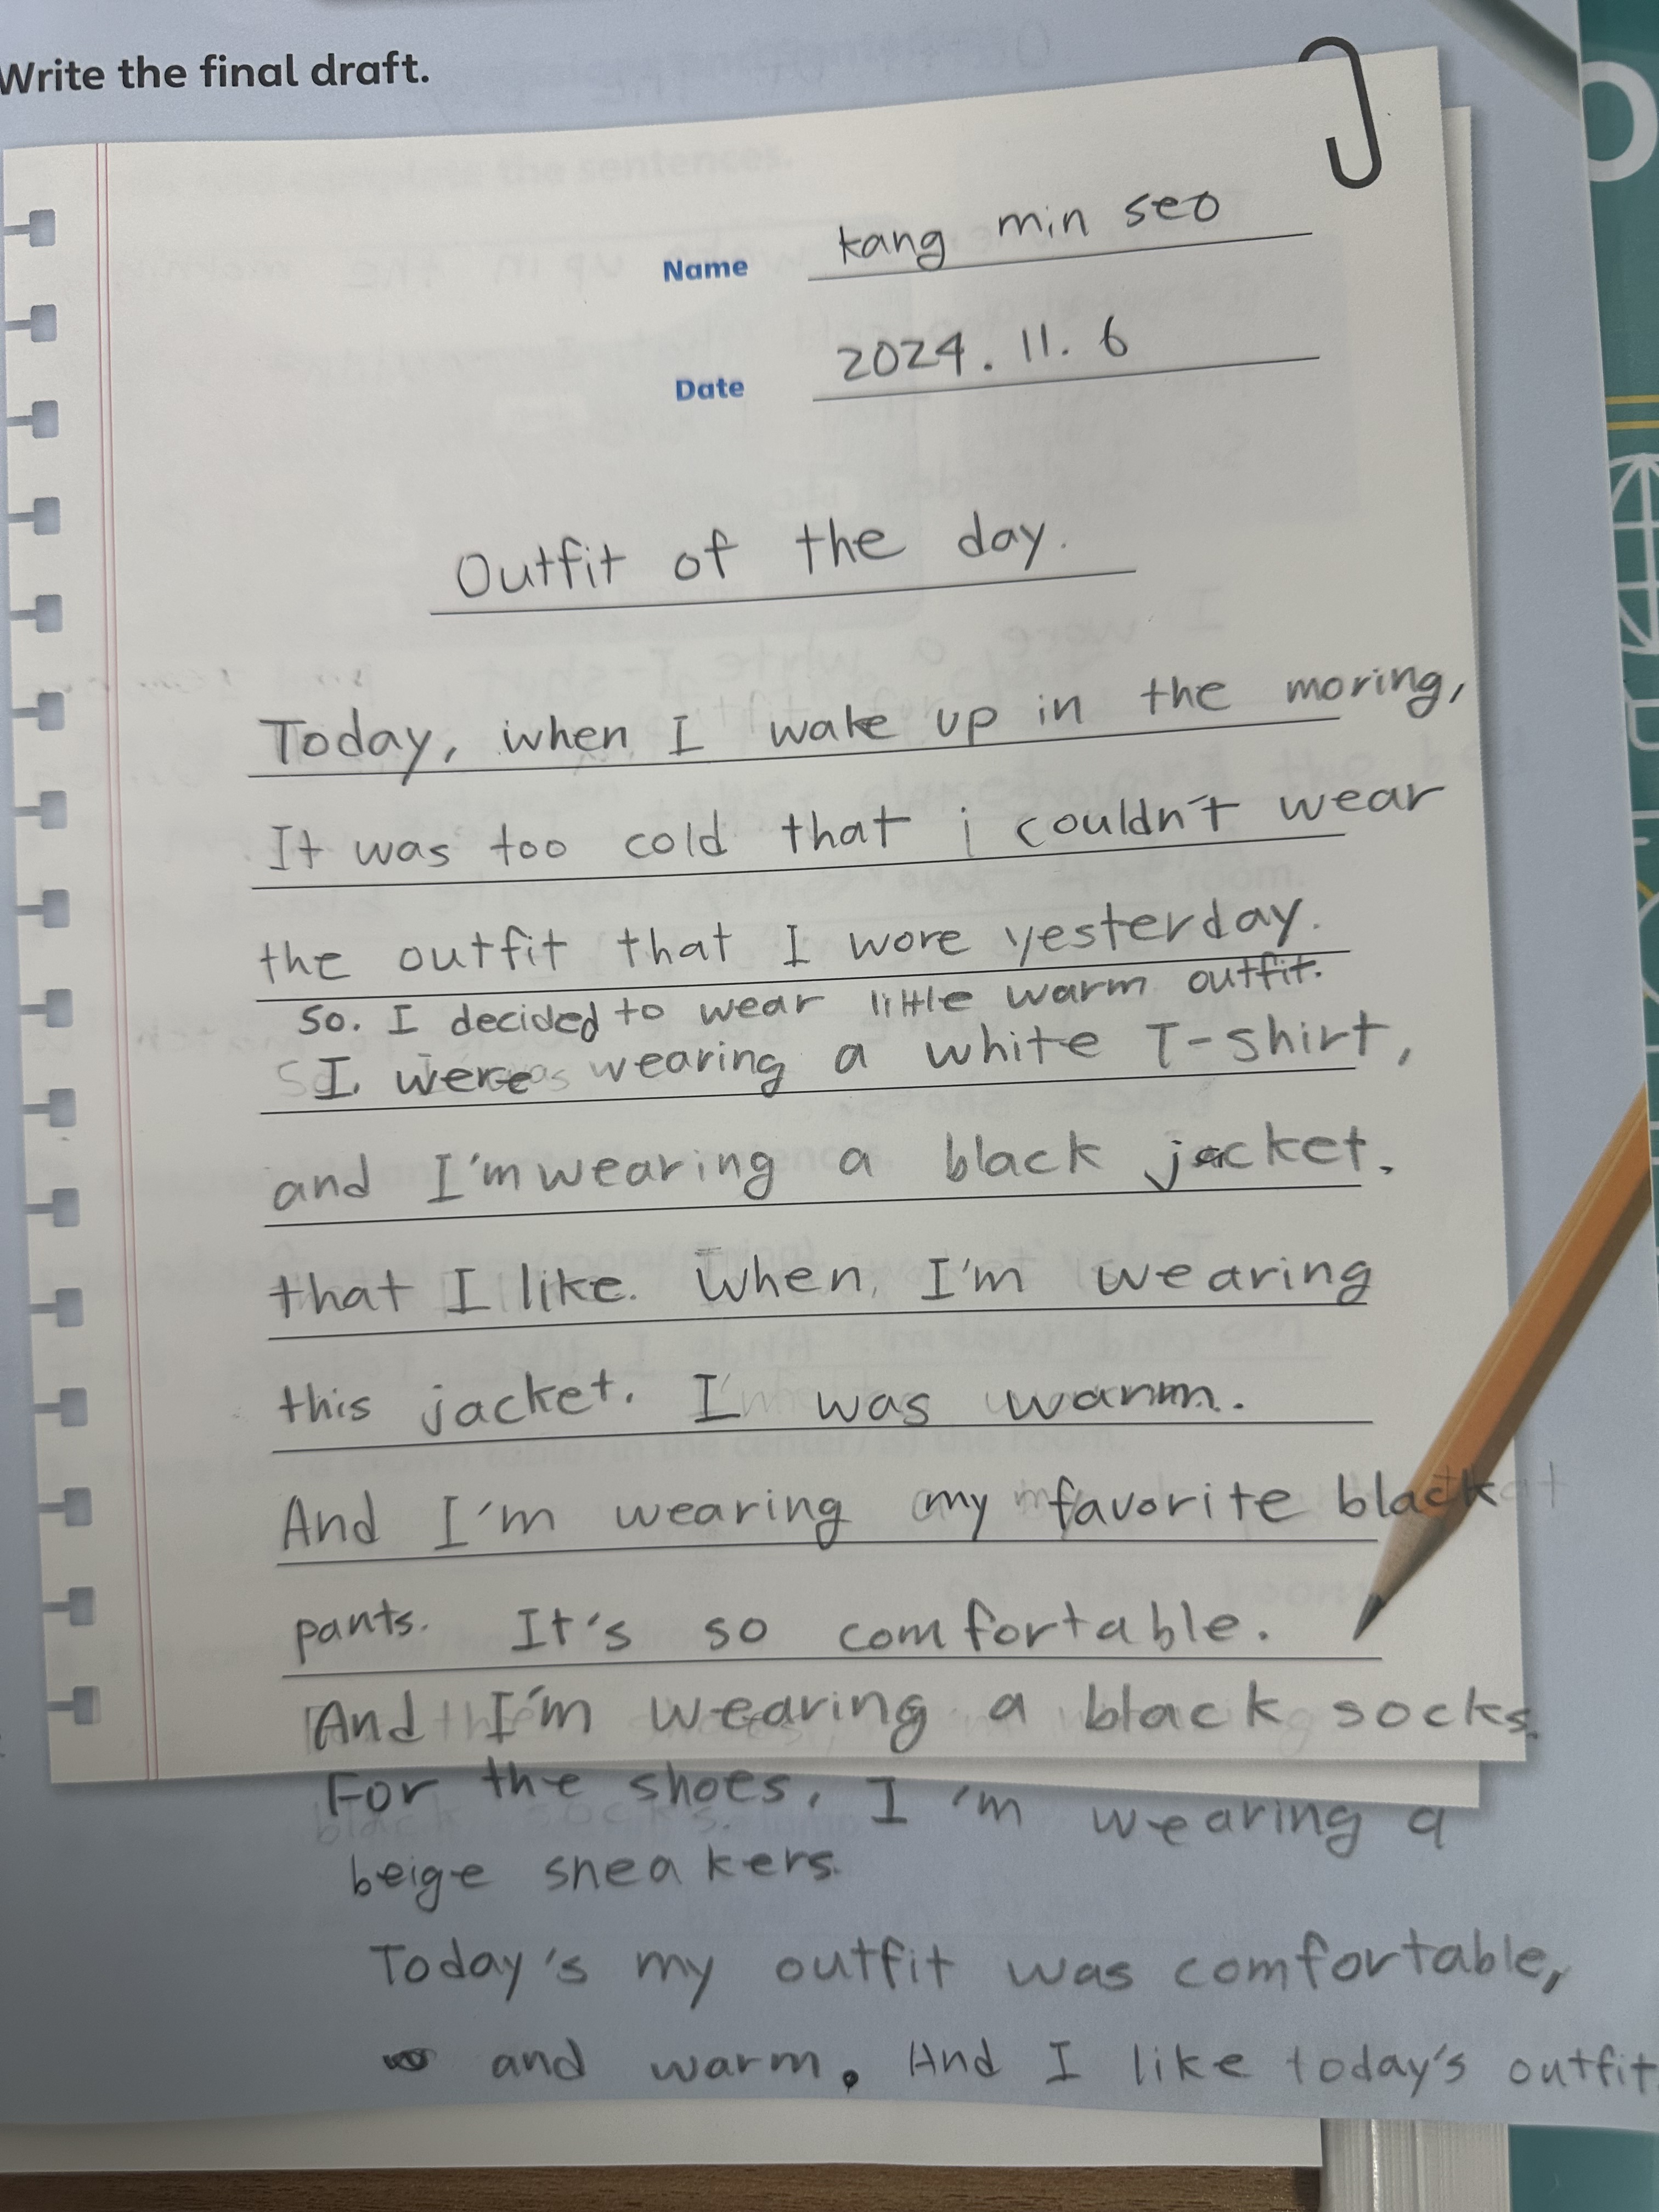 Write the final draft.
Name kang min seo
Date 2024. 11. 6
Outfit of the day.
Today, when I wake up in the moring,
It was too cold that i couldn't wear
the outfit that I wore yesterday.
so. I decided to wear little warm outfit.
I were wearing a white T-shirt,
and I'm wearing a black jacket.
that I like. When, I'm wearing
this jacket. I was warm.
And I'm wearing my favorite black
pants. It's so comfortable.
And I'm wearing a black socks.
For the shoes, I'm wearing a
beige sneakers.
Today's my outfit was comfortable,
and warm. And I like today's outfit